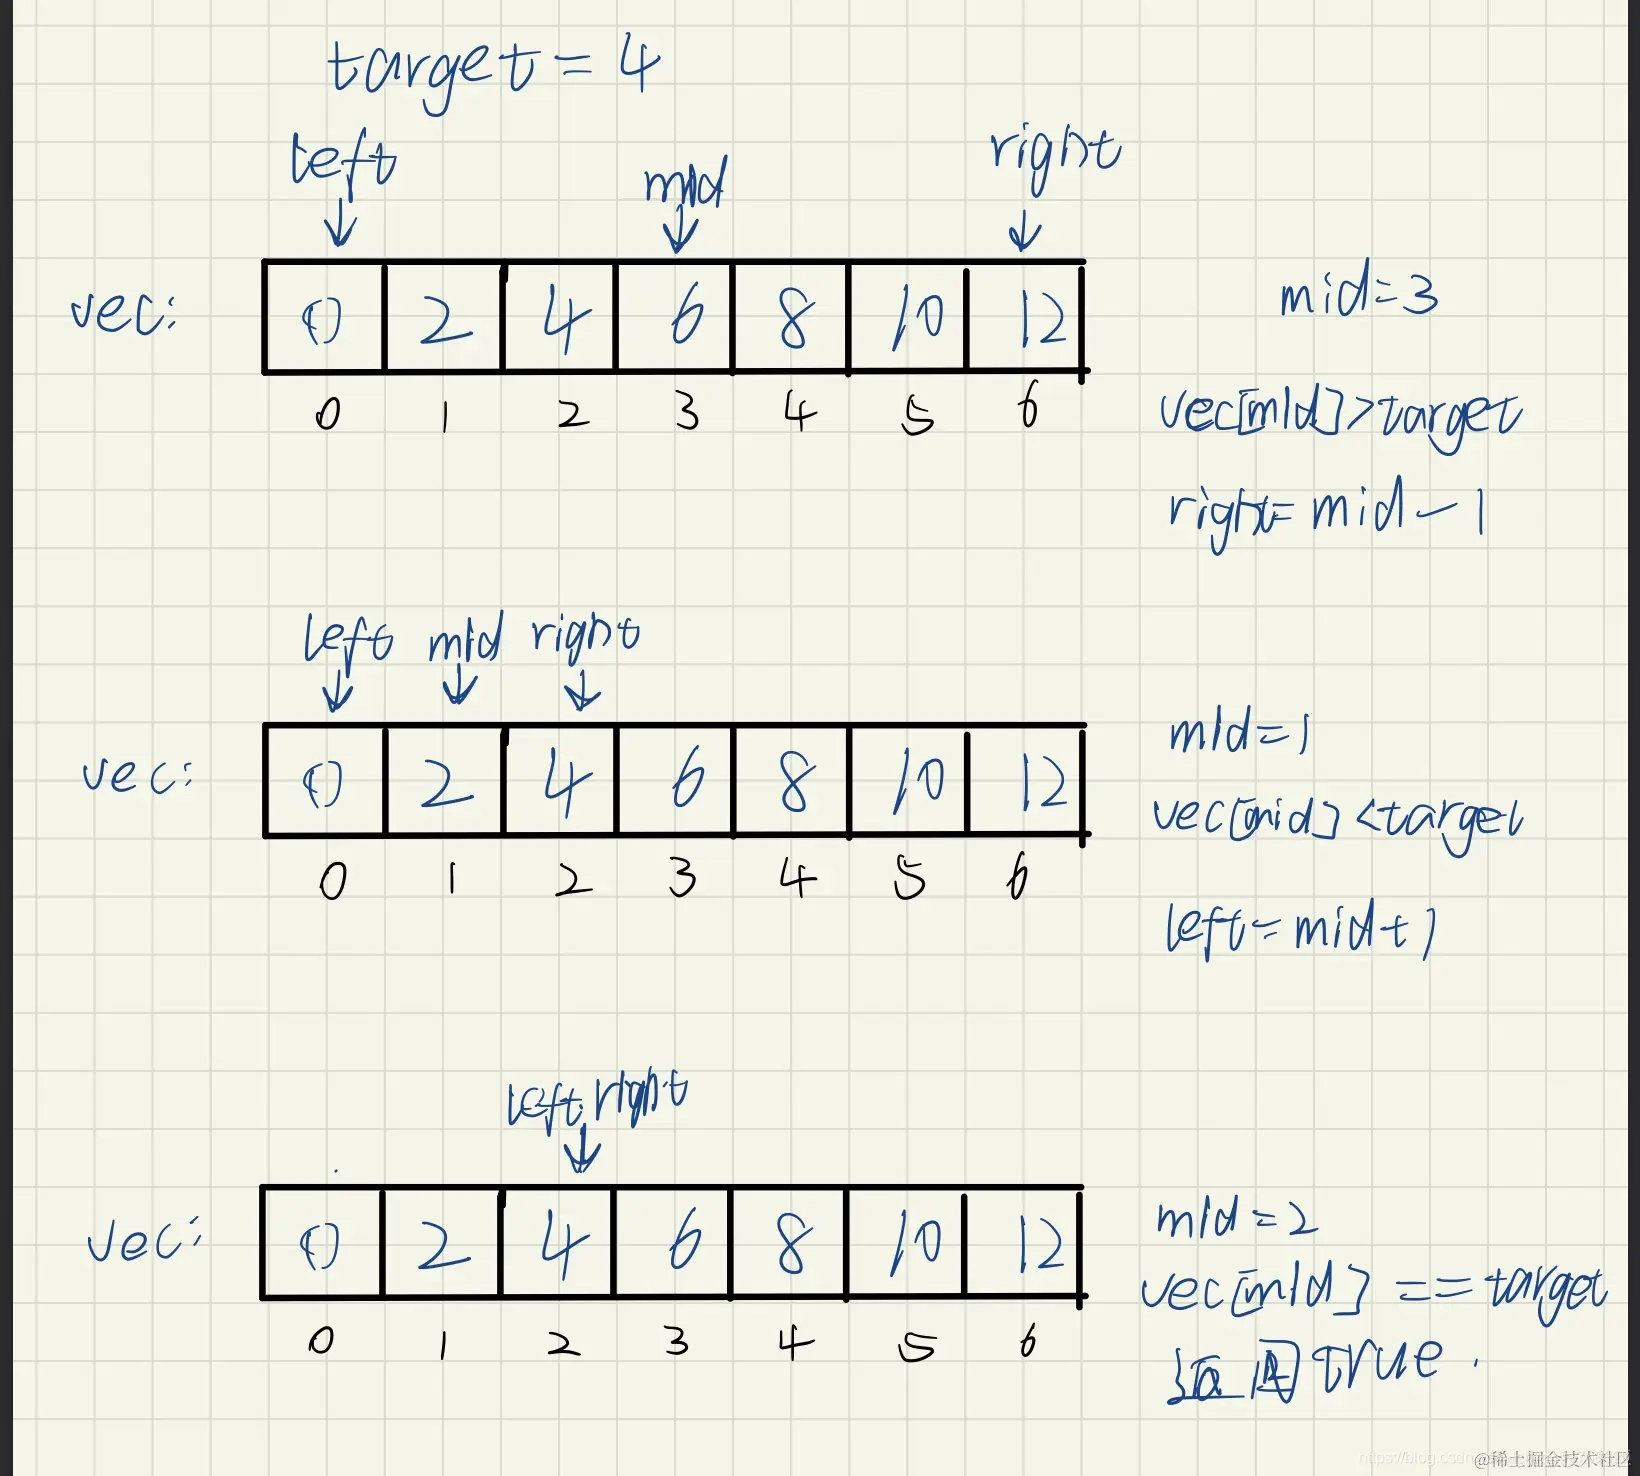 target = 4
left mid right
vec: 0 2 4 6 8 10 12
0 1 2 3 4 5 6
mid=3
vec[mid]>target
right=mid-1
left mid right
vec: 0 2 4 6 8 10 12
0 1 2 3 4 5 6
mid=1
vec[mid]<target
left=mid+1
left.right
vec: 0 2 4 6 8 10 12
0 1 2 3 4 5 6
mid=2
vec[mid]==target
返回true.
https://blog.csdn
@稀土掘金技术社区